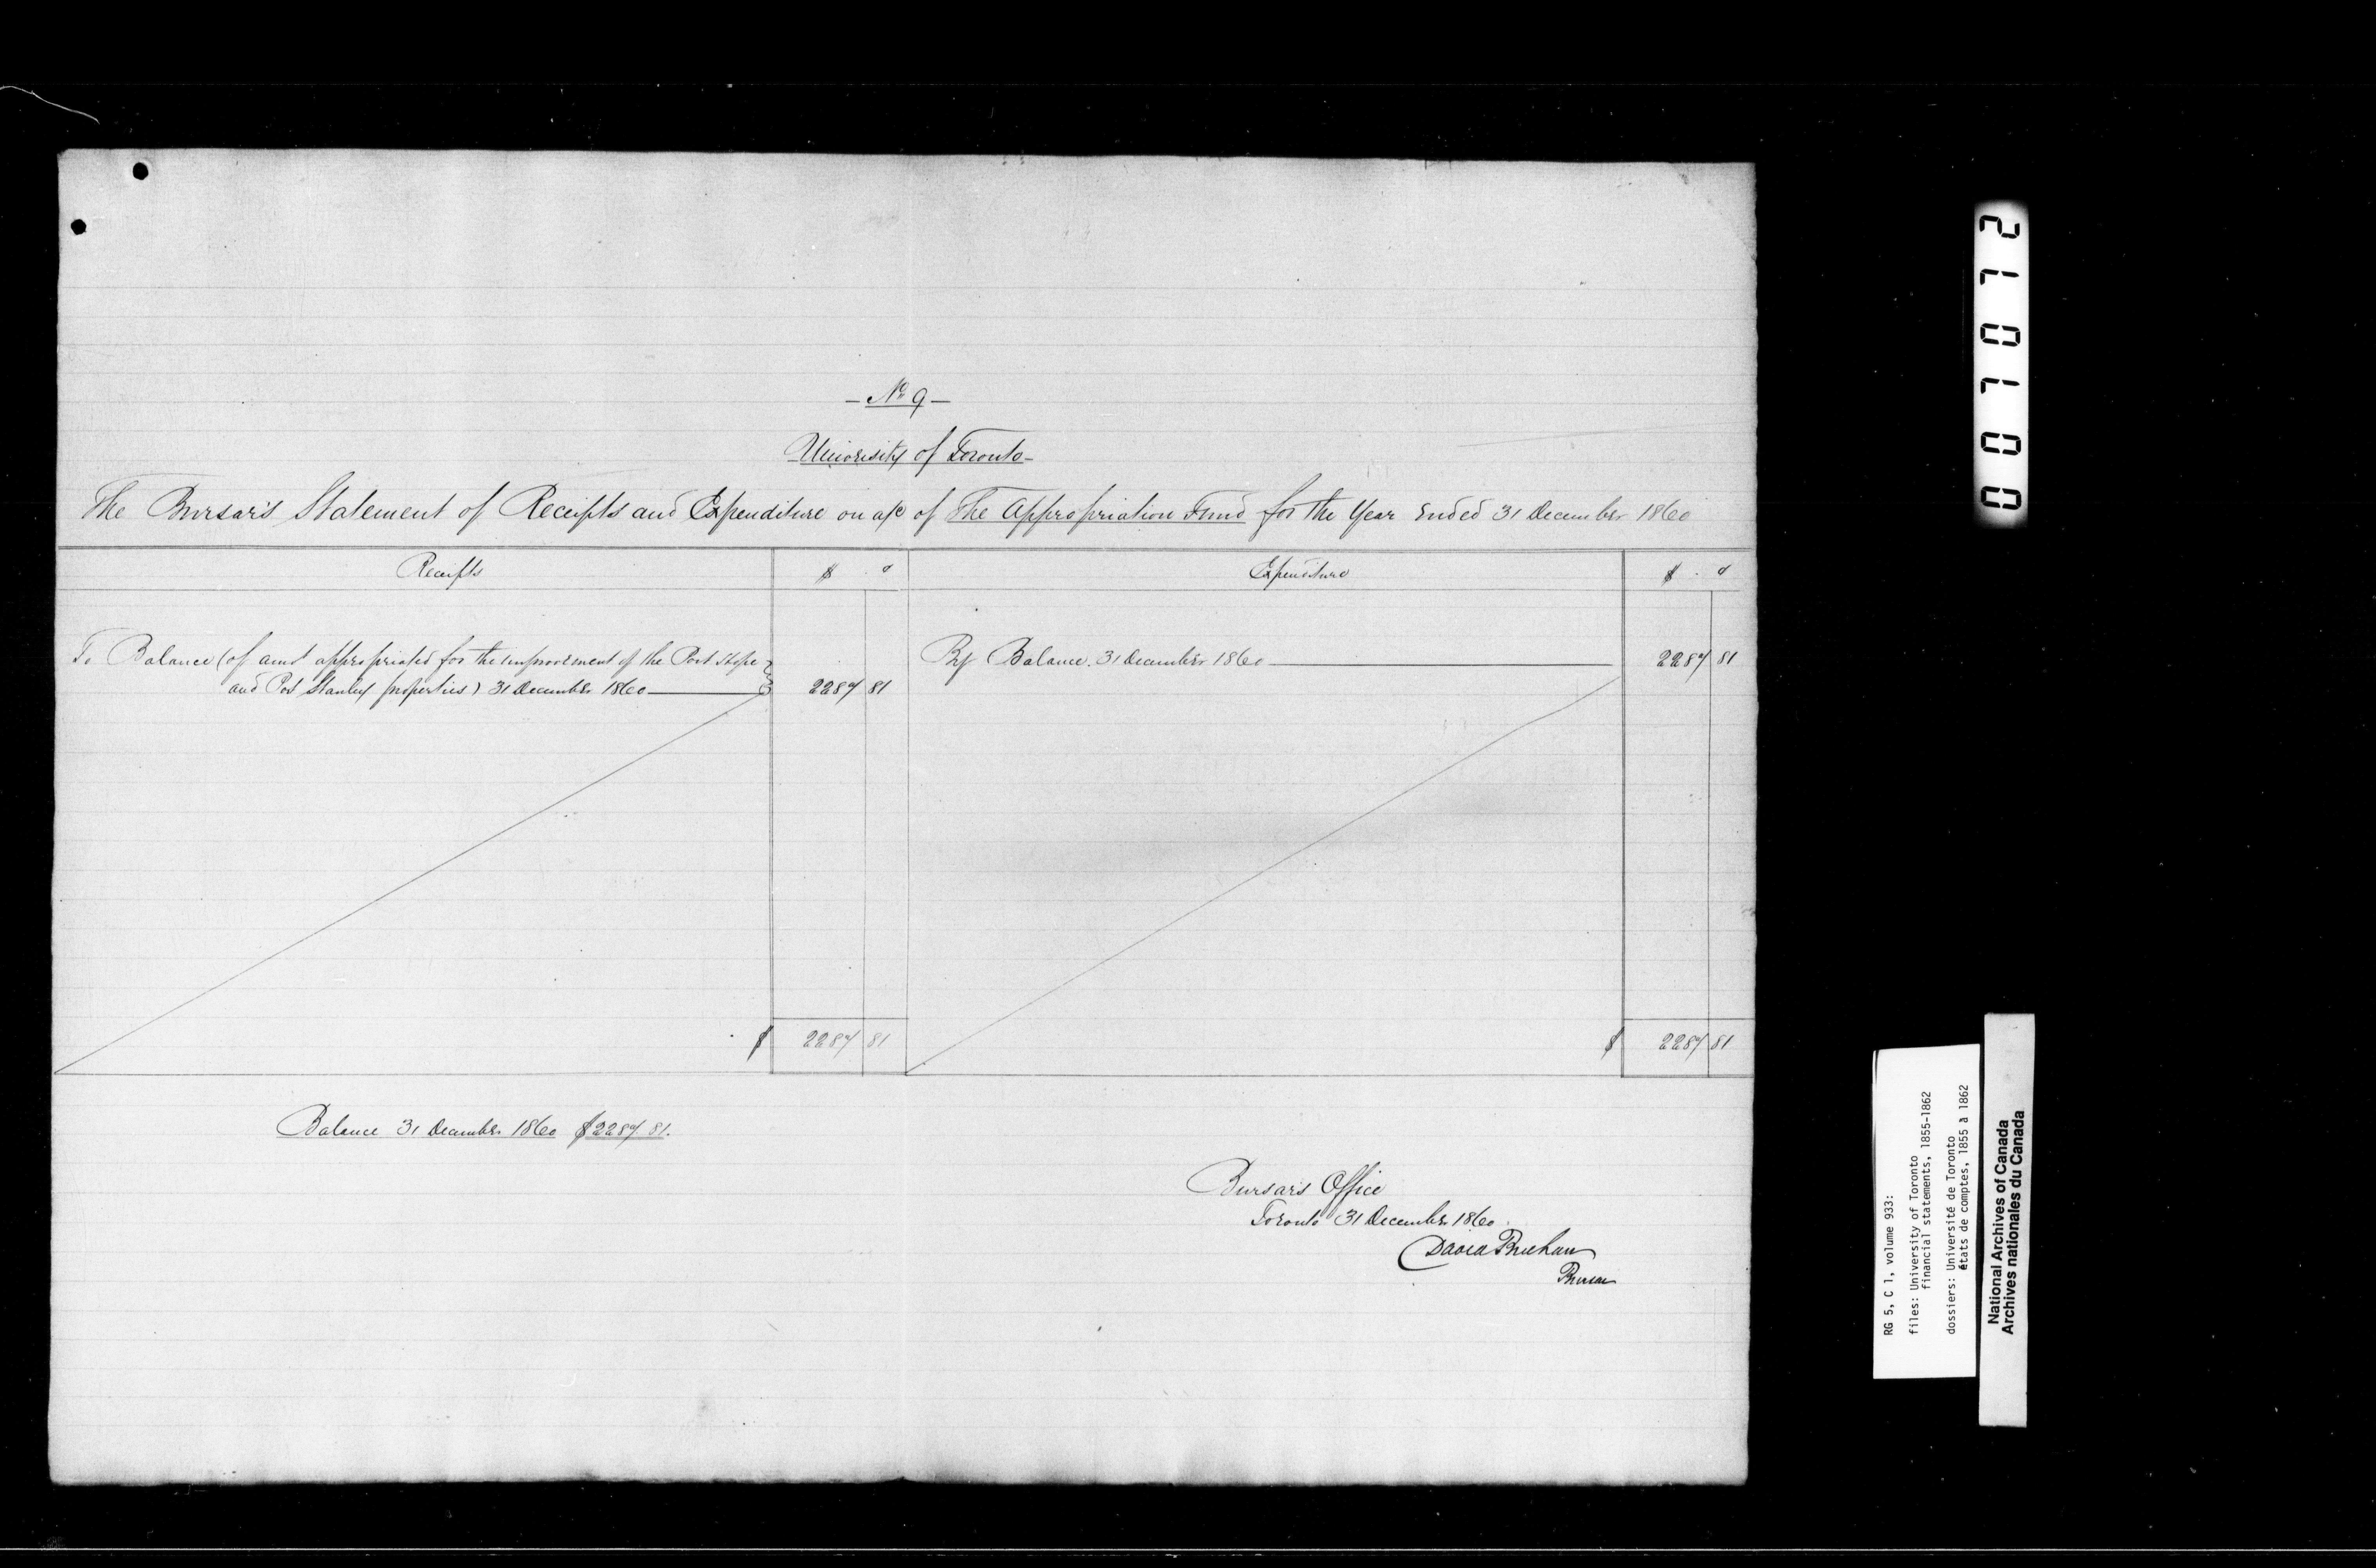 - No 9 -
University of Toronto -
The Bursar's Statement of Receipts and Expenditure on a/c of The Appropriation Fund for the Year Ended 31 December 1860
Receipts $ . c Expenditure $ . c
To Balance (of amt appropriated for the improvement of the Port Hope
and Port Stanley properties) 31 December 1860 2287 81
By Balance. 31 December 1860 2287 81
$ 2287 81 $ 2287 81
Balance 31 December 1860 $2287 81.
Bursar's Office
Toronto 31 December 1860.
David Buchan
Bursar
007012
RG 5, C 1, volume 933:
files: University of Toronto
financial statements, 1855-1862
dossiers: Université de Toronto
états de comptes, 1855 à 1862
National Archives of Canada
Archives nationales du Canada